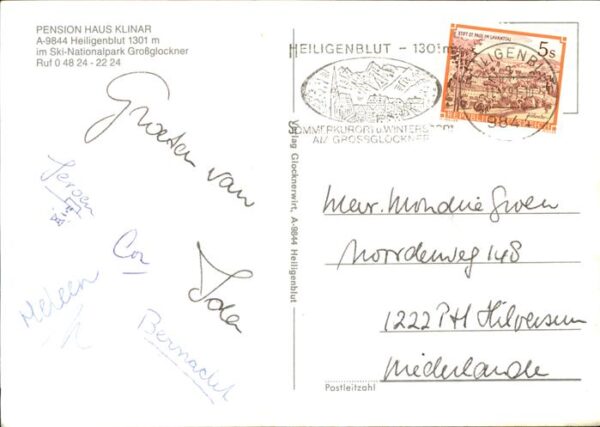 PENSION HAUS KLINAR
A-9844 Heiligenblut 1301 m
im Ski-Nationalpark Großglockner
Ruf 0 48 24 - 22 24
Groeten van
Jeroen
Cor
Ida
Heleen
Bernadet
Verlag Glocknerwirt, A-9844 Heiligenblut
HEILIGENBLUT - 1301m
SOMMERKURORT u. WINTERSPORT
AM GROSSGLOCKNER
STIFT ST. PAUL IM LAVANTTAL
5s
HEILIGENBL
9844
REPUBLIK ÖSTERREICH
Mevr. Mondria Groen
Noorderweg 148
1222 PH Hilversum
Niederlande
Postleitzahl